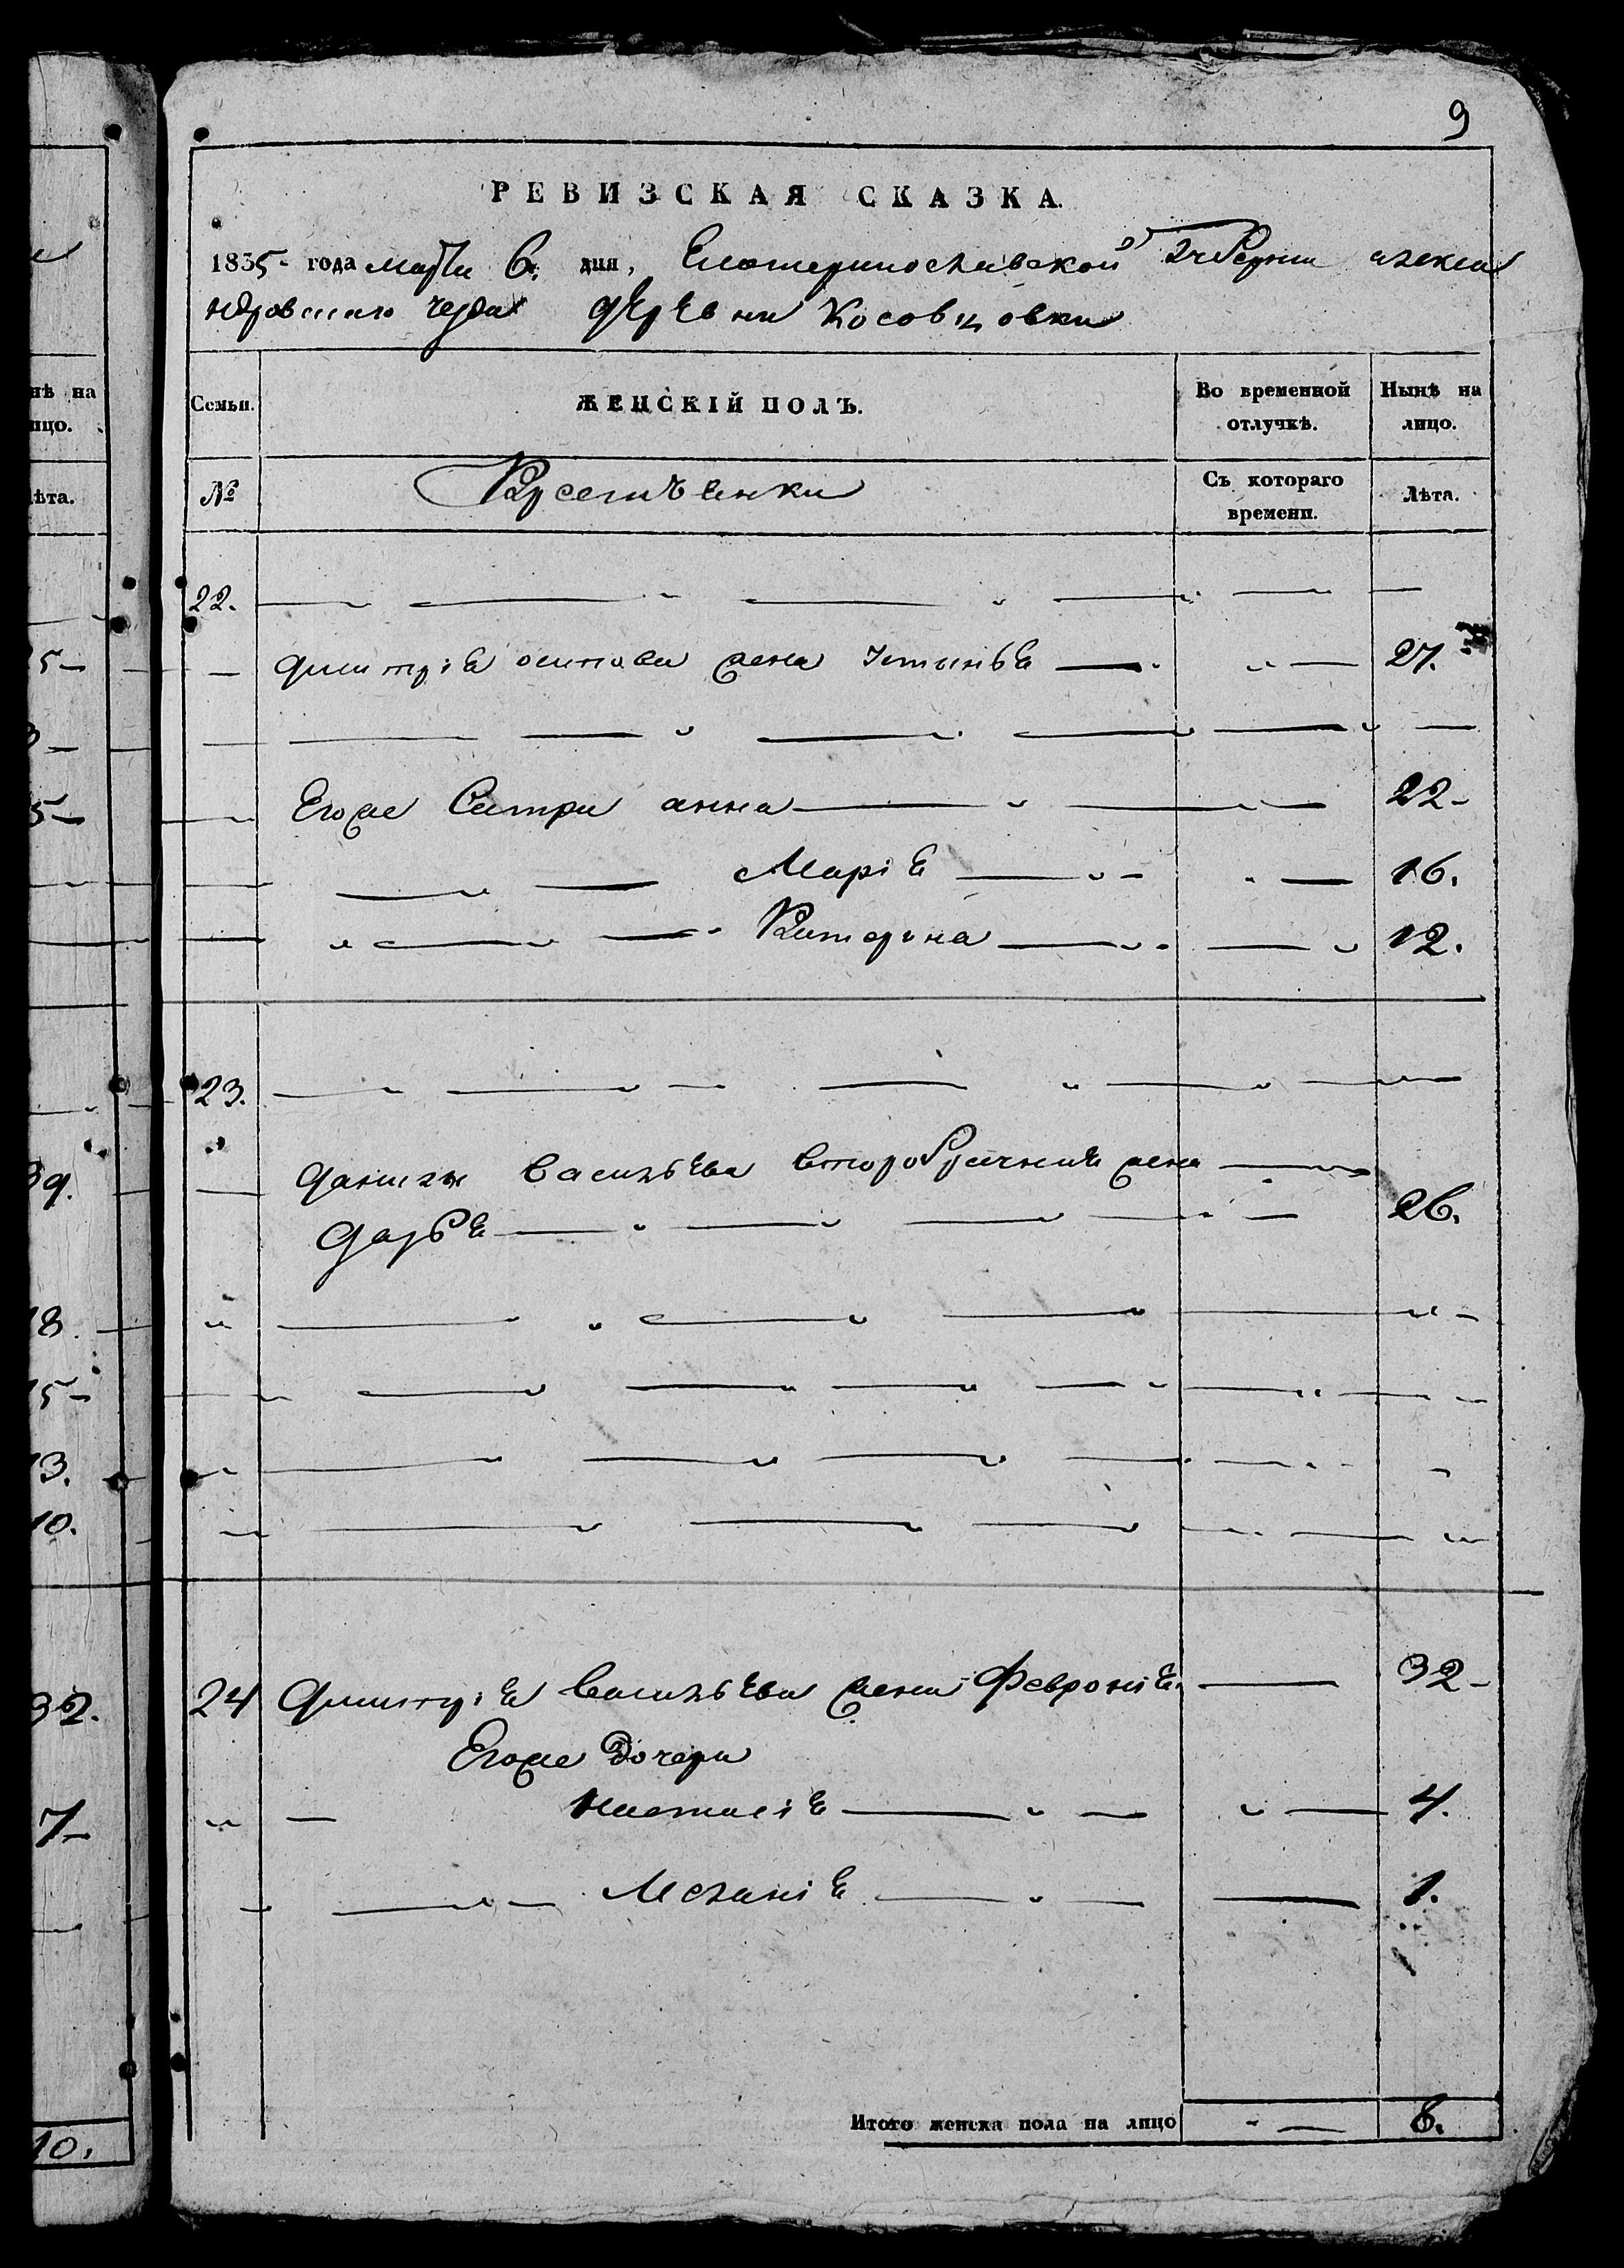 9
РЕВИЗСКАЯ СКАЗКА.
1835 года марта 6. дня, Екатеринославской губернии алекса
ндровскаго уезда дѣрѣвни Косовцовки
Семьи. ЖЕНСКІЙ ПОЛЪ. Во временной отлучкѣ. Нынѣ на лицо.
№ Крестьянки Съ котораго времени. Лѣта.
22.
дмитрія осипова жена Устинья 27.
Егоже Сестри анна 22
Марія 16.
Катерина 12.
23.
данила Васильѣва второбрачная жена
Дарья 26.
24 дмитрія Васильѣва жена Февронія 32
Егоже Дочери
Настасія 4.
Меланія 1.
Итого женска пола на лицо 8.
нѣ на
ицо.
ѣта.
5
5
39.
18.
15
13.
10.
32.
7
10.